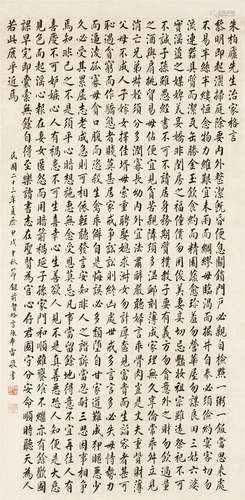 朱柏廬先生治家格言
黎明即起灑掃庭除要內外整潔既昏便息關鎖門戶必親自檢點一粥一飯當思來處
不易半絲半縷恒念物力維艱宜未雨而綢繆毋臨渴而掘井自奉必須儉約宴客切勿
流連器具質而潔瓦缶勝金玉飲食約而精園蔬愈珍饈勿營華屋勿謀良田三姑六婆
實淫盜之媒婢美妾嬌非閨房之福僮僕勿用俊美妻妾切忌艷妝祖宗雖遠祭祀不可
不誠子孫雖愚經書不可不讀居身務期質樸教子要有義方勿貪意外之財勿飲過量
之酒與肩挑貿易毋佔便宜見貧苦親鄰須多溫恤刻薄成家理無久享倫常乖舛立見
消亡兄弟叔姪須分多潤寡長幼內外宜法肅辭嚴聽婦言乖骨肉豈是丈夫重貲財薄
父母不成人子嫁女擇佳婿毋索重聘娶媳求淑女毋計厚奩見富貴而生諂容者最可
恥遇貧窮而作驕態者賤莫甚居家戒爭訟訟則終凶處世戒多言言多必失毋恃勢力
而凌逼孤寡毋貪口腹而恣殺生禽乖僻自是悔誤必多頹惰自甘家道難成狎暱惡少
久必受其累屈志老成急則可相依輕聽發言安知非人之譖愬當忍耐三思因事相爭
焉知非己之不是須平心暗想施惠無念受恩莫忘凡事當留餘地得意不宜再往人有
喜慶不可生妒忌心人有禍患不可生喜幸心善欲人見不是真善惡恐人知便是大惡
見色而起淫心報在妻女匿怨而用暗箭禍延子孫家門和順雖饔飧不繼亦有餘歡國
課早完即囊橐無餘自得至樂讀書志在聖賢為官心存君國守分安命順時聽天為人
若此庶乎近焉
民國二十三年夏歷甲戌中秋節錄前賢格言